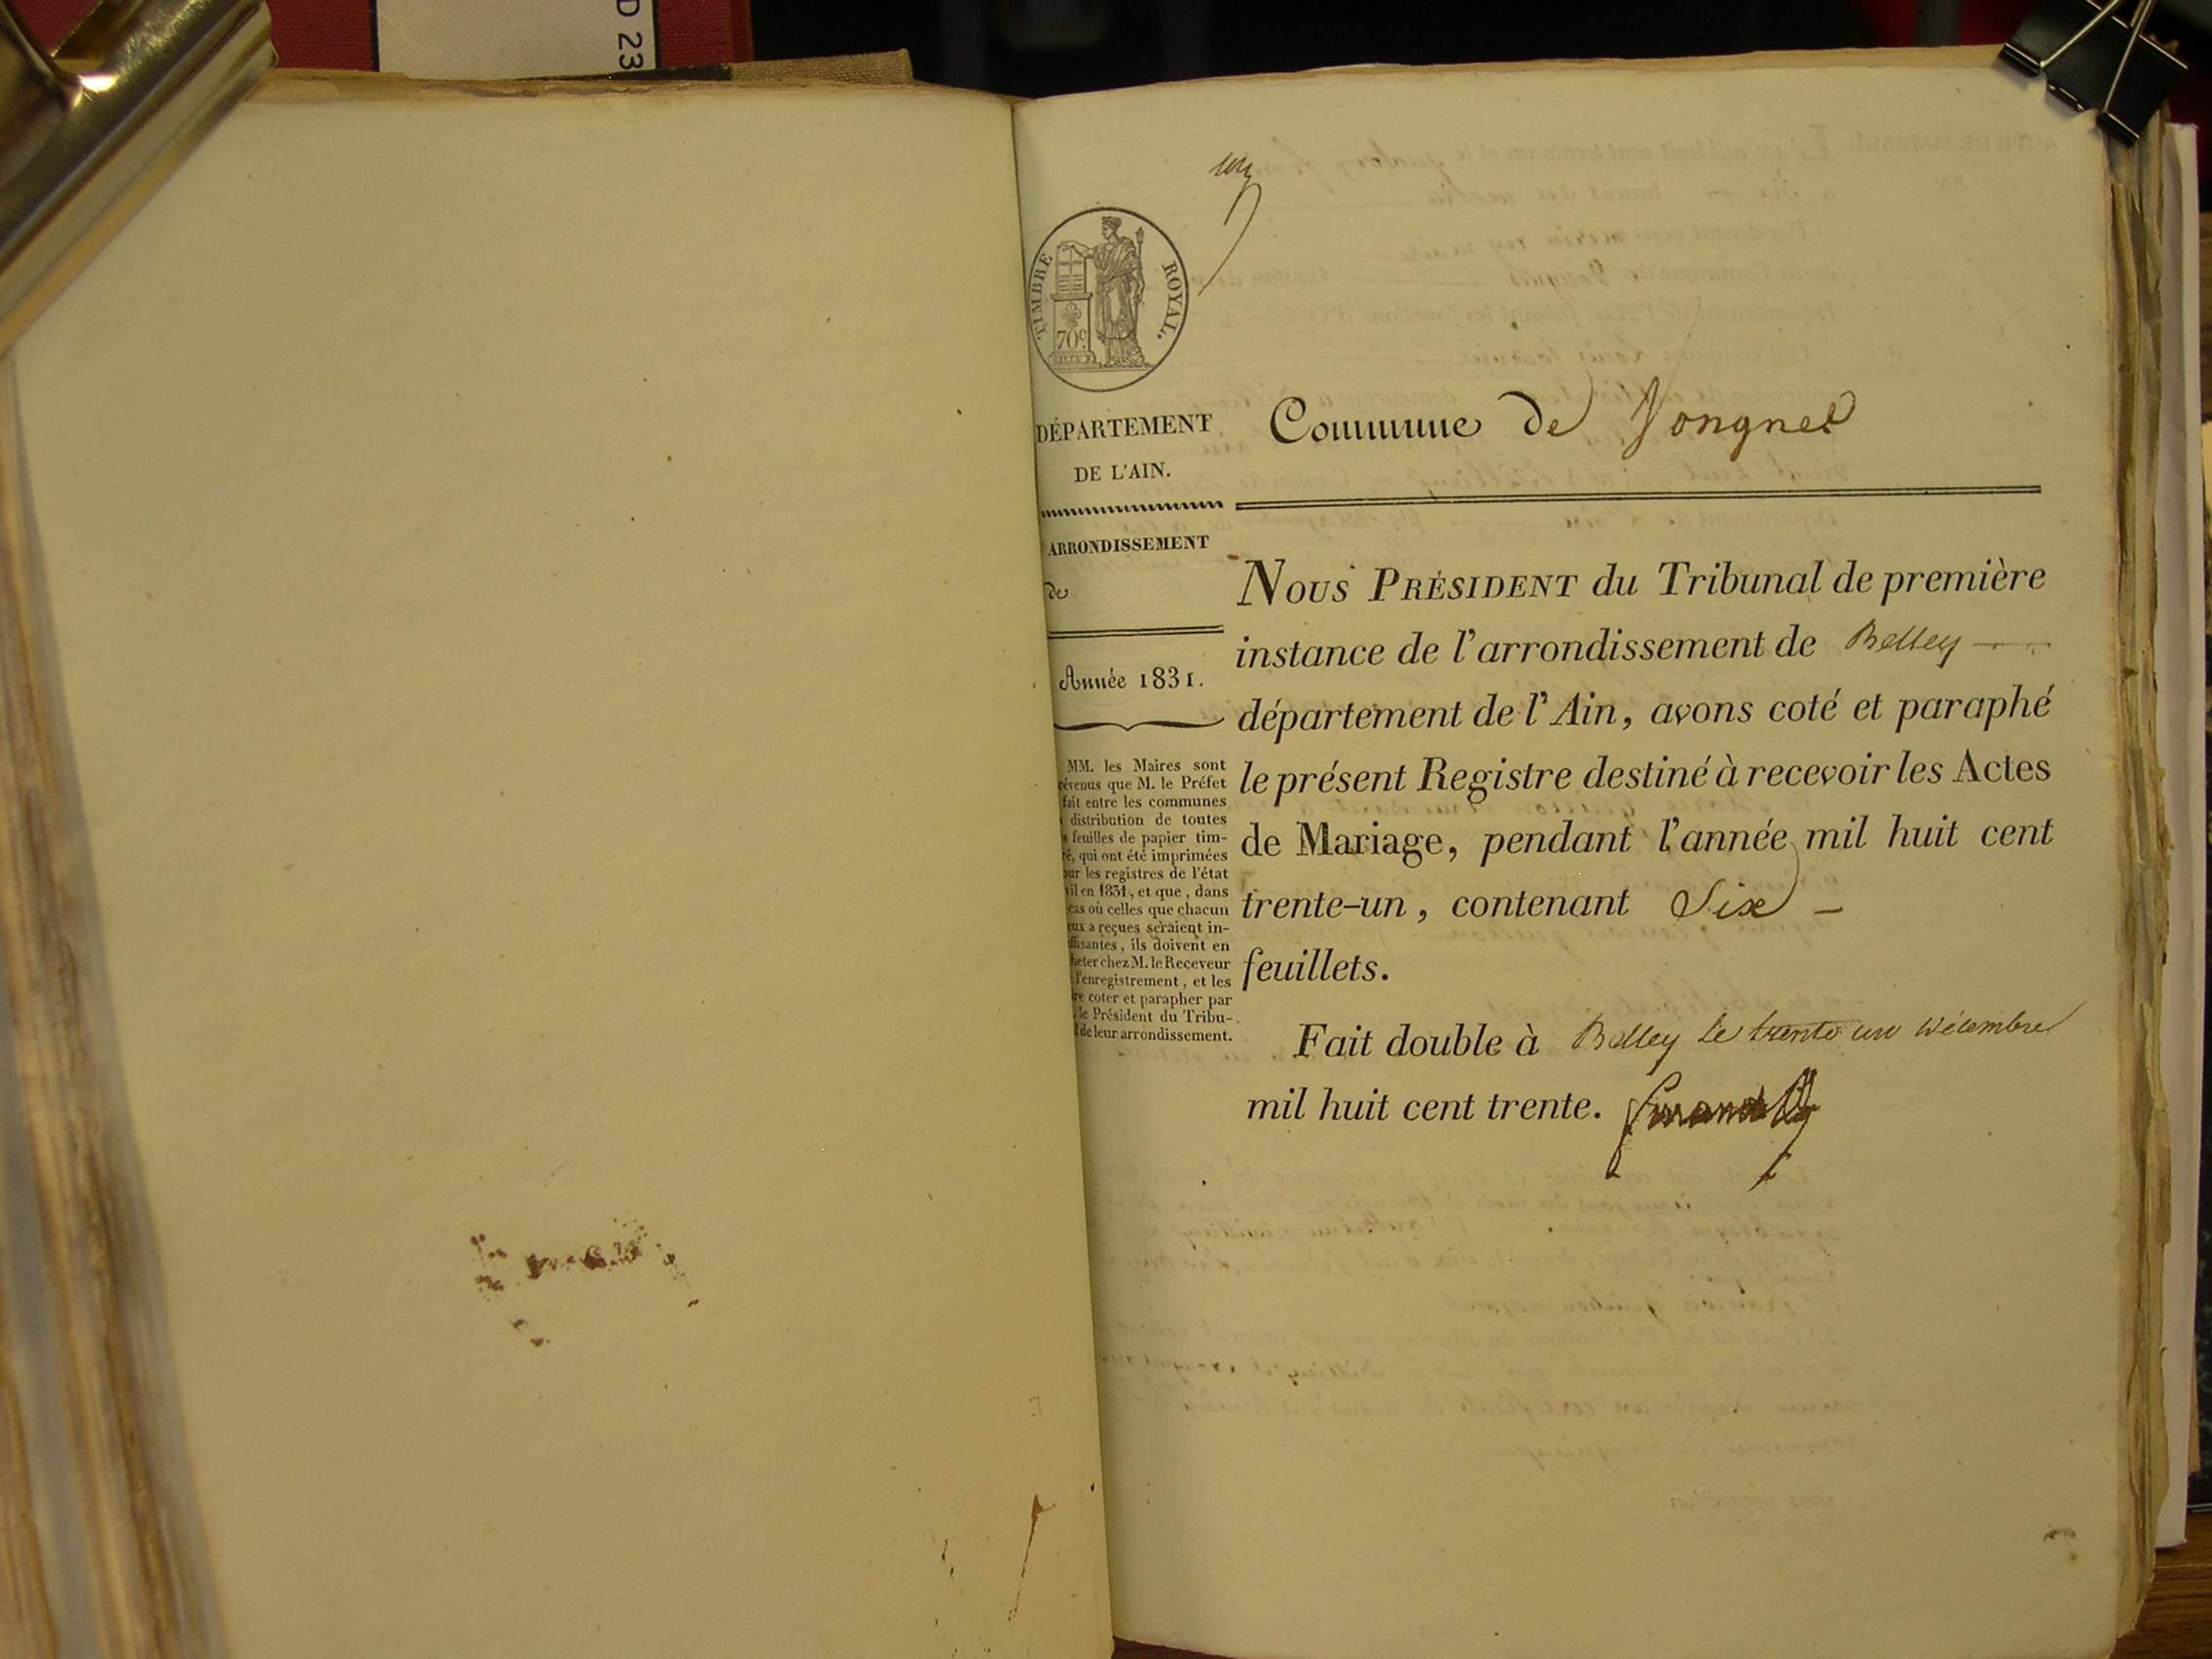 D 23
TIMBRE ROYAL.
70c.
DÉPARTEMENT
DE L'AIN.
ARRONDISSEMENT
de
Année 1831.
MM. les Maires sont
révenus que M. le Préfet
fait entre les communes
distribution de toutes
s feuilles de papier tim-
ré, qui ont été imprimées
our les registres de l'état
vil en 1831, et que, dans
cas où celles que chacun
eux a reçues seraient in-
ffisantes, ils doivent en
heter chez M. le Receveur
l'enregistrement, et les
re coter et parapher par
. le Président du Tribu-
l de leur arrondissement.
Commune de Vongnes
NOUS PRÉSIDENT du Tribunal de première
instance de l'arrondissement de Belley
département de l'Ain, avons coté et paraphé
le présent Registre destiné à recevoir les Actes
de Mariage, pendant l'année mil huit cent
trente-un, contenant Six
feuillets.
Fait double à Belley le trente un Décembre
mil huit cent trente.